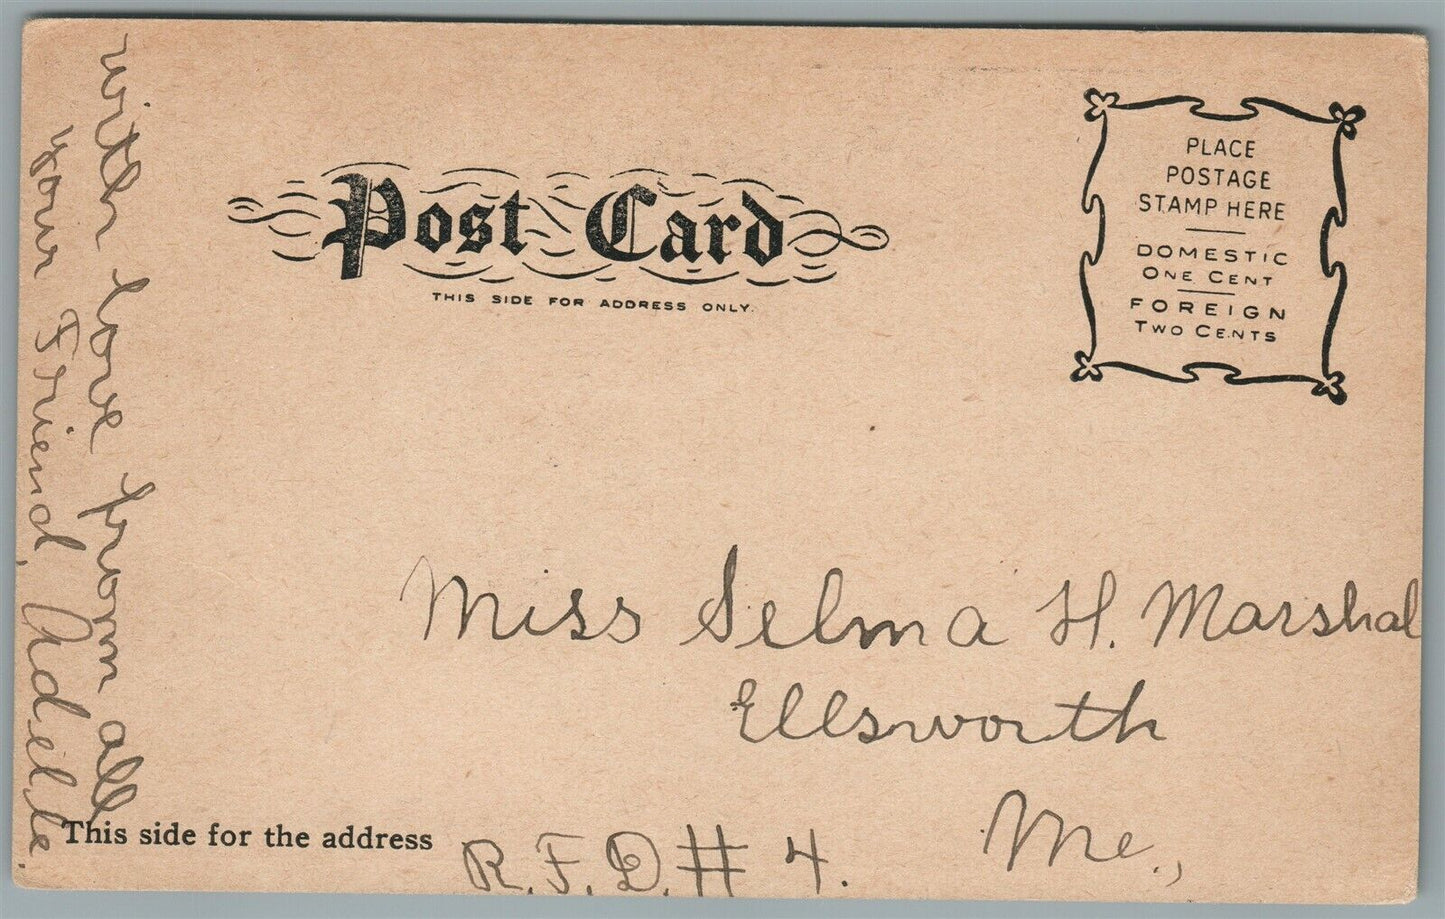 Post Card
THIS SIDE FOR ADDRESS ONLY.
PLACE
POSTAGE
STAMP HERE
DOMESTIC
ONE CENT
FOREIGN
TWO CENTS
with love from all
your Friend, Adeille.
Miss Selma H. Marshal
Ellsworth
Me.,
R.F.D. # 4.
This side for the address